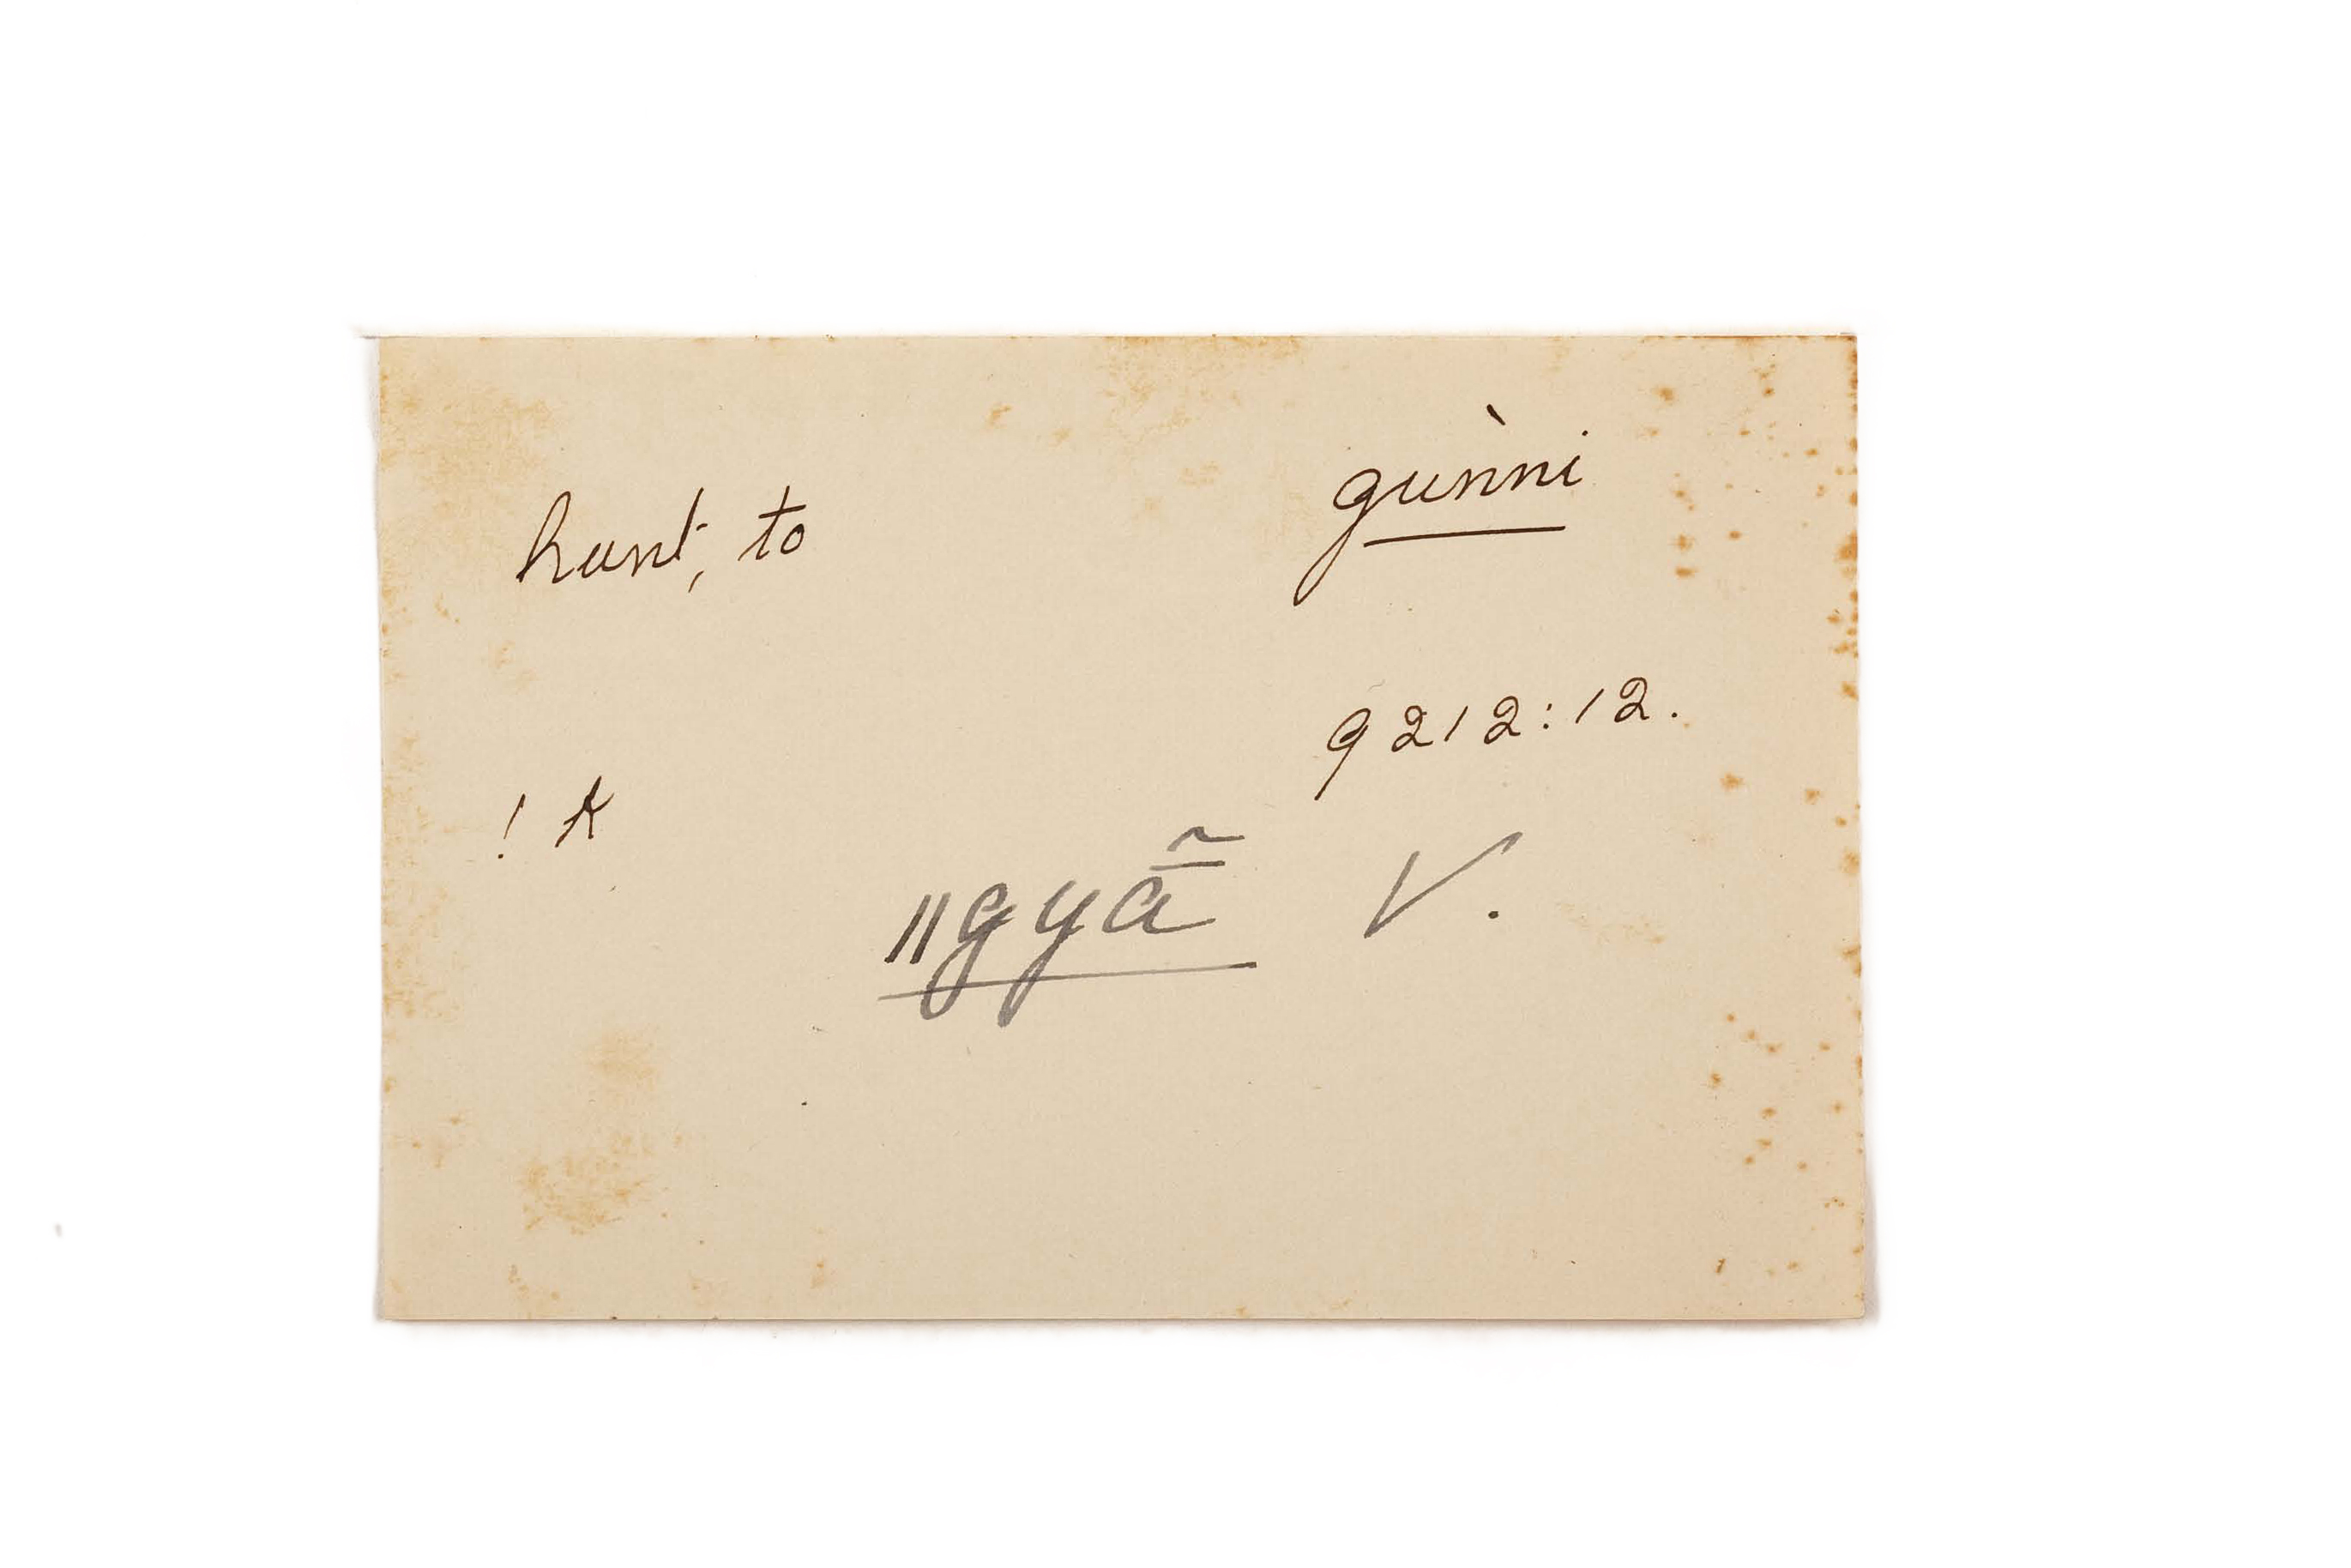 hunt, to gùnni
9212:12.
! k
ǁgyā̃ V.